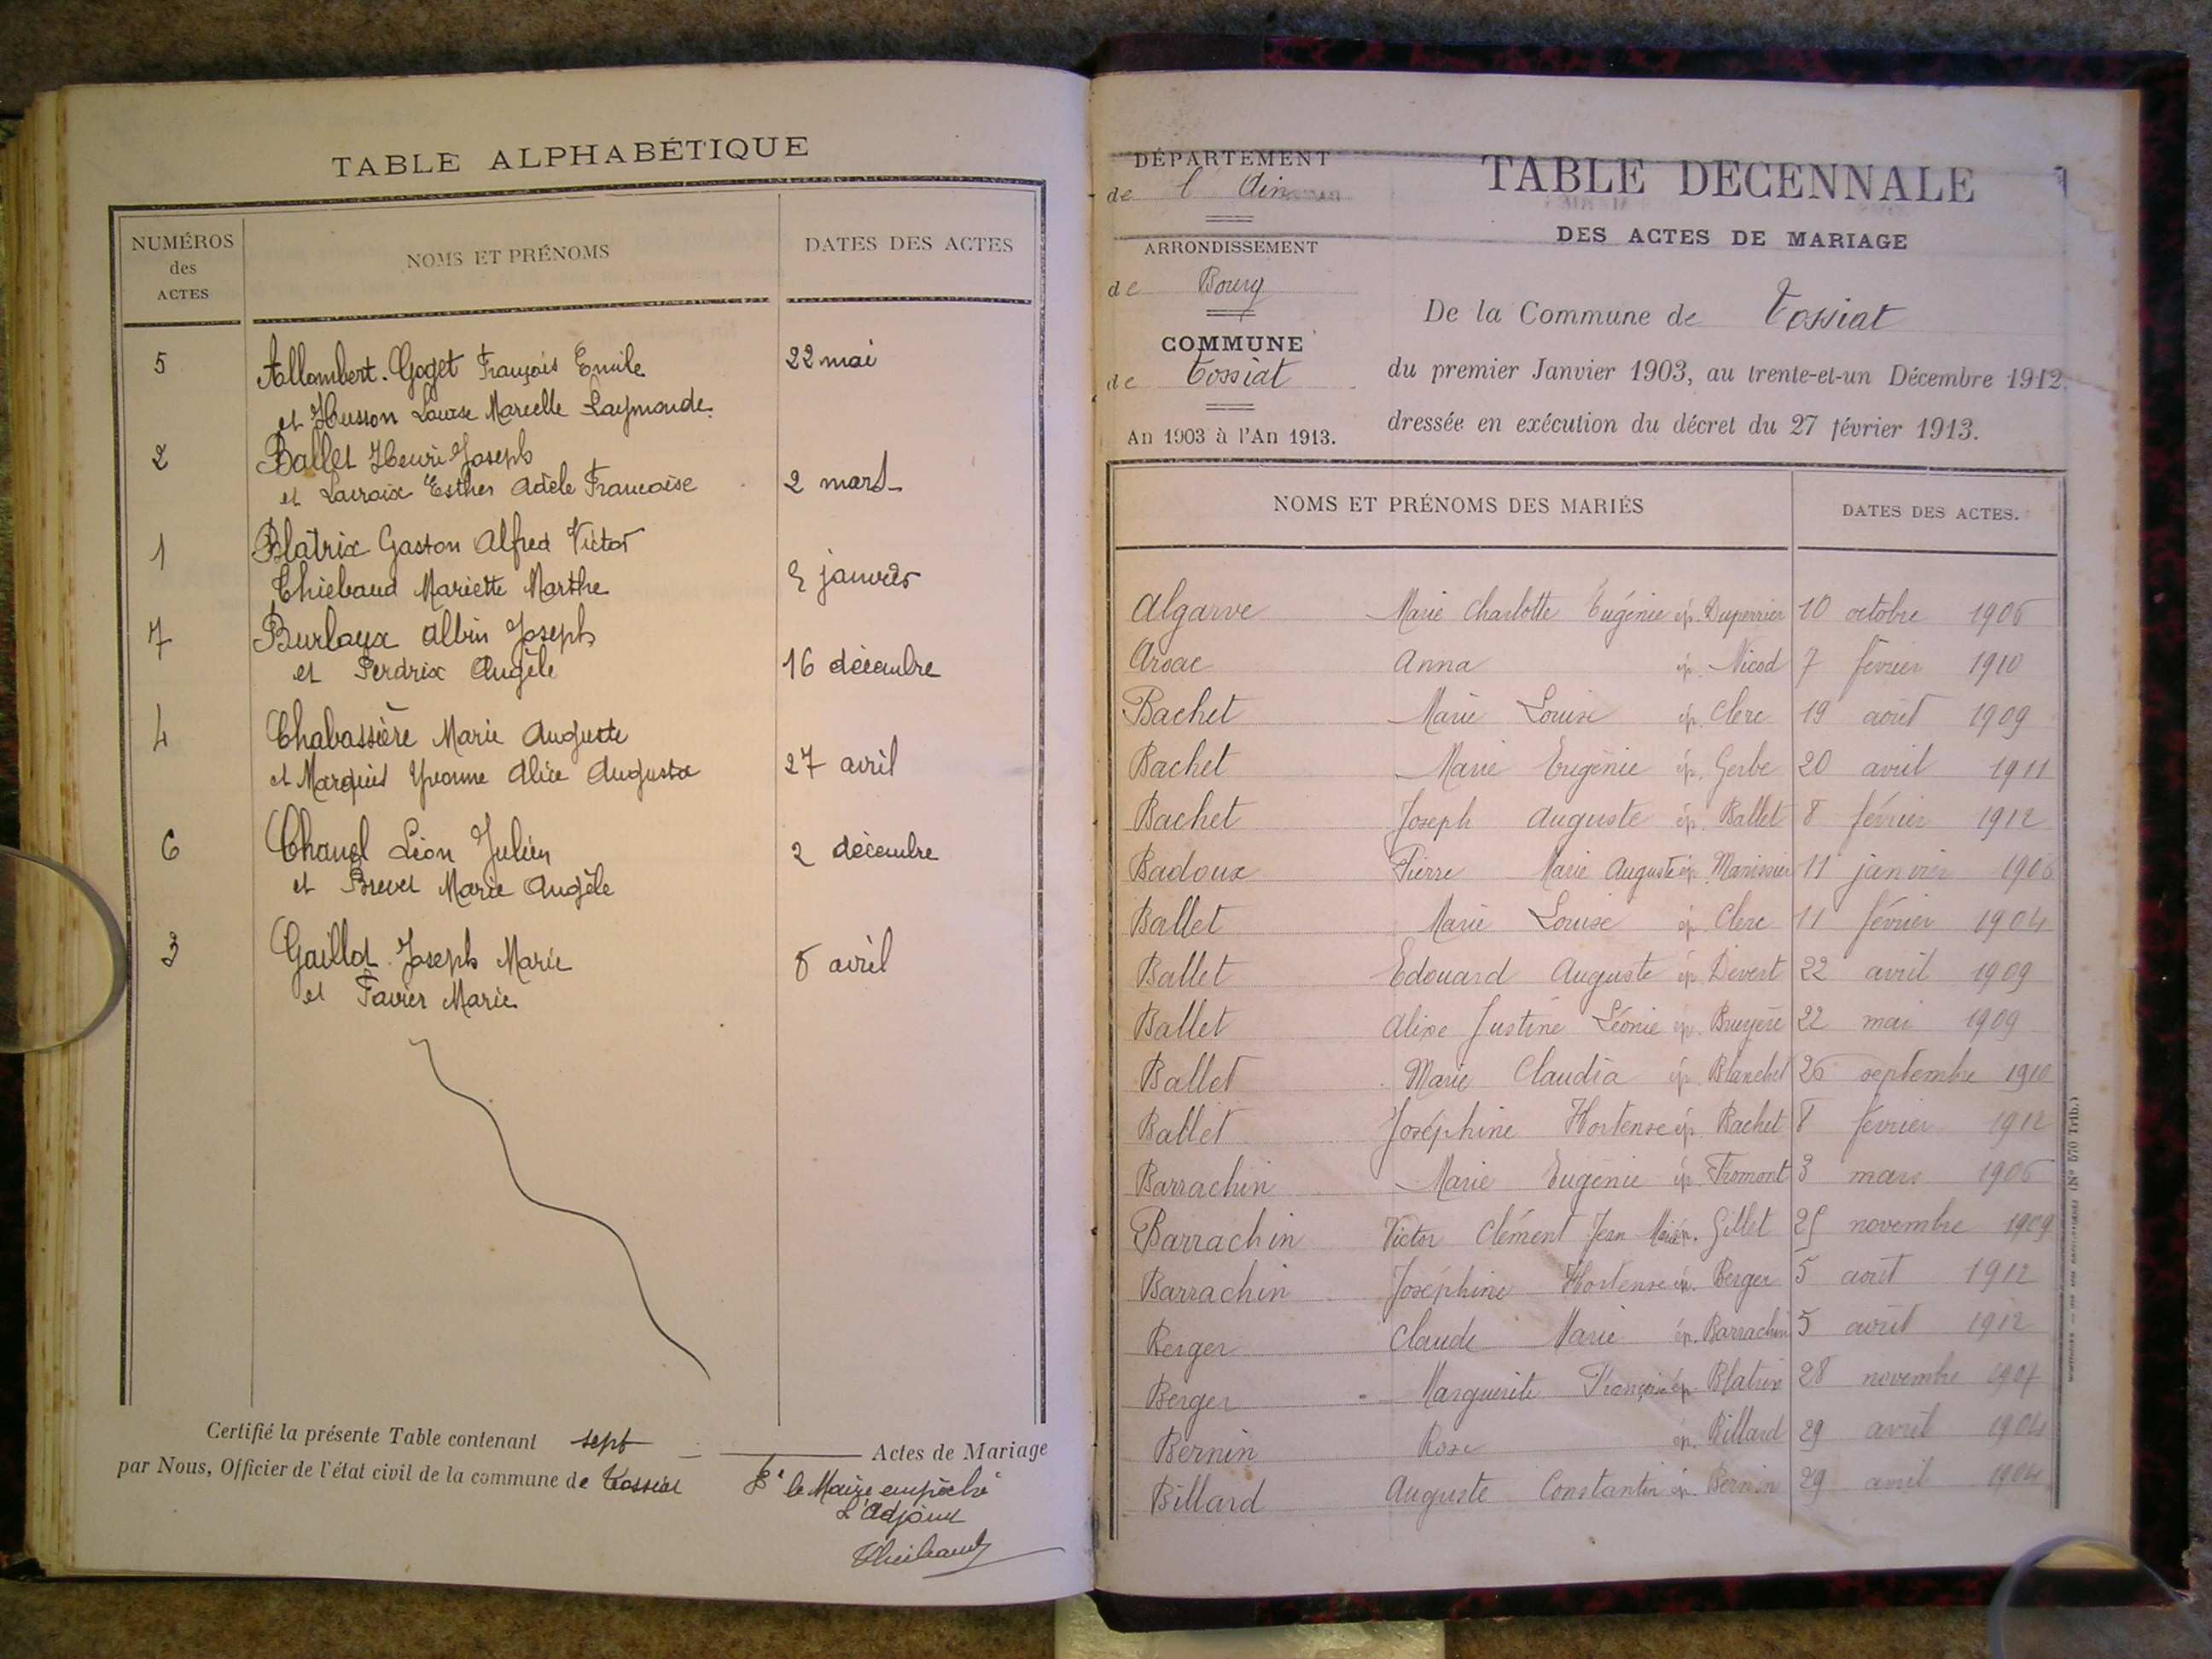 TABLE ALPHABÉTIQUE
NUMÉROS des ACTES
NOMS ET PRÉNOMS
DATES DES ACTES
5 Allombert-Goget François Emile 22 mai
et Husson Louise Marcelle Raymonde
2 Ballet Henri Joseph
et Lacroix Esther Adèle Francoise 2 mars
1 Blatrix Gaston Alfred Victor
Thiébaud Mariette Marthe 2 janvier
7 Burlaux Albin Joseph
et Perdrix Angèle 16 décembre
4 Chabassière Marie Auguste
et Marquis Yvonne Alice Augusta 27 avril
6 Chanel Léon Julien 2 décembre
et Brevet Marie Angèle
3 Gaillot Joseph Marie 8 avril
et Favier Marie
Certifié la présente Table contenant sept Actes de Mariage
par Nous, Officier de l'état civil de la commune de Tossiat
Pr le Maire empêché
L'adjoint
Thiébaud
DÉPARTEMENT
de l'Ain
ARRONDISSEMENT
de Bourg
COMMUNE
de Tossiat
An 1903 à l'An 1913.
TABLE DECENNALE
DES ACTES DE MARIAGE
De la Commune de Tossiat
du premier Janvier 1903, au trente-et-un Décembre 1912,
dressée en exécution du décret du 27 février 1913.
NOMS ET PRÉNOMS DES MARIÉS
DATES DES ACTES.
Algarve Marie Charlotte Eugénie ép. Duperrier 10 octobre 1906
Arsac Anna ép. Nicod 7 février 1910
Bachet Marie Louise ép. Clerc 19 août 1909
Bachet Marie Eugénie ép. Gerbe 20 avril 1911
Bachet Joseph Auguste ép. Ballet 8 février 1912
Badoux Pierre Marie Auguste ép. Manissier 11 janvier 1906
Ballet Marie Louise ép. Clerc 11 février 1904
Ballet Edouard Auguste ép. Divert 22 avril 1909
Ballet Alixe Justine Léonie ép. Bruyère 22 mai 1909
Ballet Marie Claudia ép. Blanchet 26 septembre 1910
Ballet Joséphine Hortense ép. Bachet 8 février 1912
Barrachin Marie Eugénie ép. Fromont 3 mars 1906
Barrachin Victor Clément Jean Marie ép. Gillet 25 novembre 1909
Barrachin Joséphine Hortense ép. Berger 5 août 1912
Berger Claude Marie ép. Barrachin 5 août 1912
Berger Marguerite Françoise ép. Blatrix 28 novembre 1907
Bernin Rose ép. Billard 29 avril 1904
Billard Auguste Constantin ép. Bernin 29 avril 1904